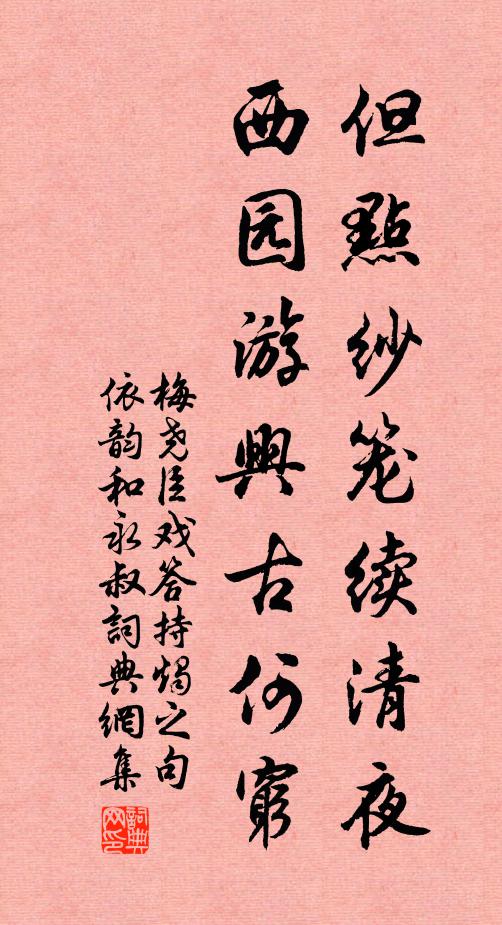 但點纱笼续清夜
西园游興古何窮
梅尧臣戏答持烛之句
依韵和永叔詞典網集
詞典
网印